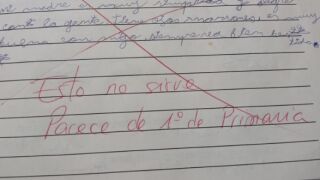 mi madre es muy simpática y alegre
con la gente, tiene ojos marrones, es muy
buena con migo siempre
Esto no sirve
Parece de 1º de Primaria